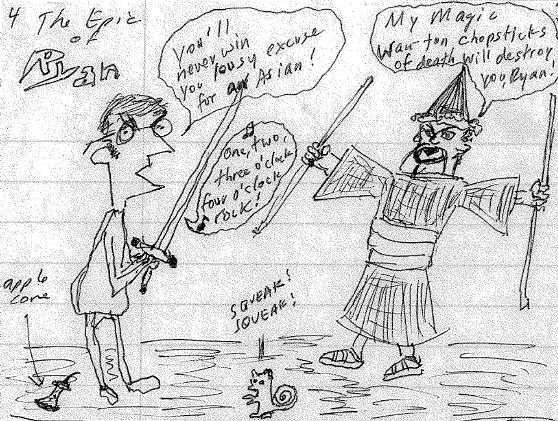 4 The Epic
of
Ryan
You'll
never win
you lousy excuse
for an Asian!
My Magic
Wau ton chopsticks
of death will destroy
you, Ryan!
One, two,
three o'clock
four o'clock
rock!
SQUEAK!
SQUEAK!
apple
core